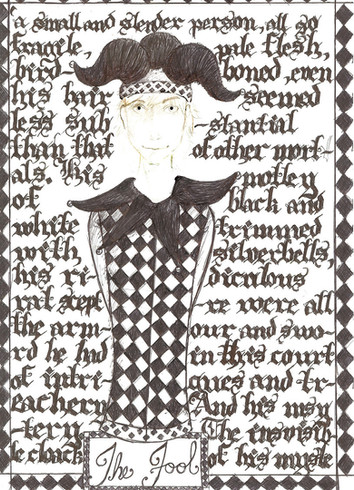 a small and slender person, all so
fragile, pale flesh,
bird- boned, even
his hair seemed
less sub -stantial
than that of other mort
als. His motley
of black and
white trimmed
with silverbells,
his ri- diculous
rat scept re were all
the arm- our and swo-
rd he had in this court
of intri- gues and tr-
eachery And his mys
tery. The invisib
le cloack of his myste
The Fool